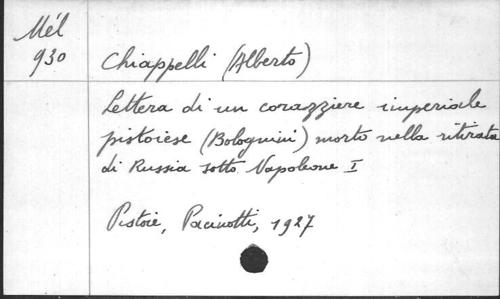 Mél
930
Chiappelli (Alberto)
Lettera di un corazziere imperiale
pistoiese (Bolognini) morto nella ritirata
di Russia sotto Napoleone I
Pistoie, Pacinotti, 1927